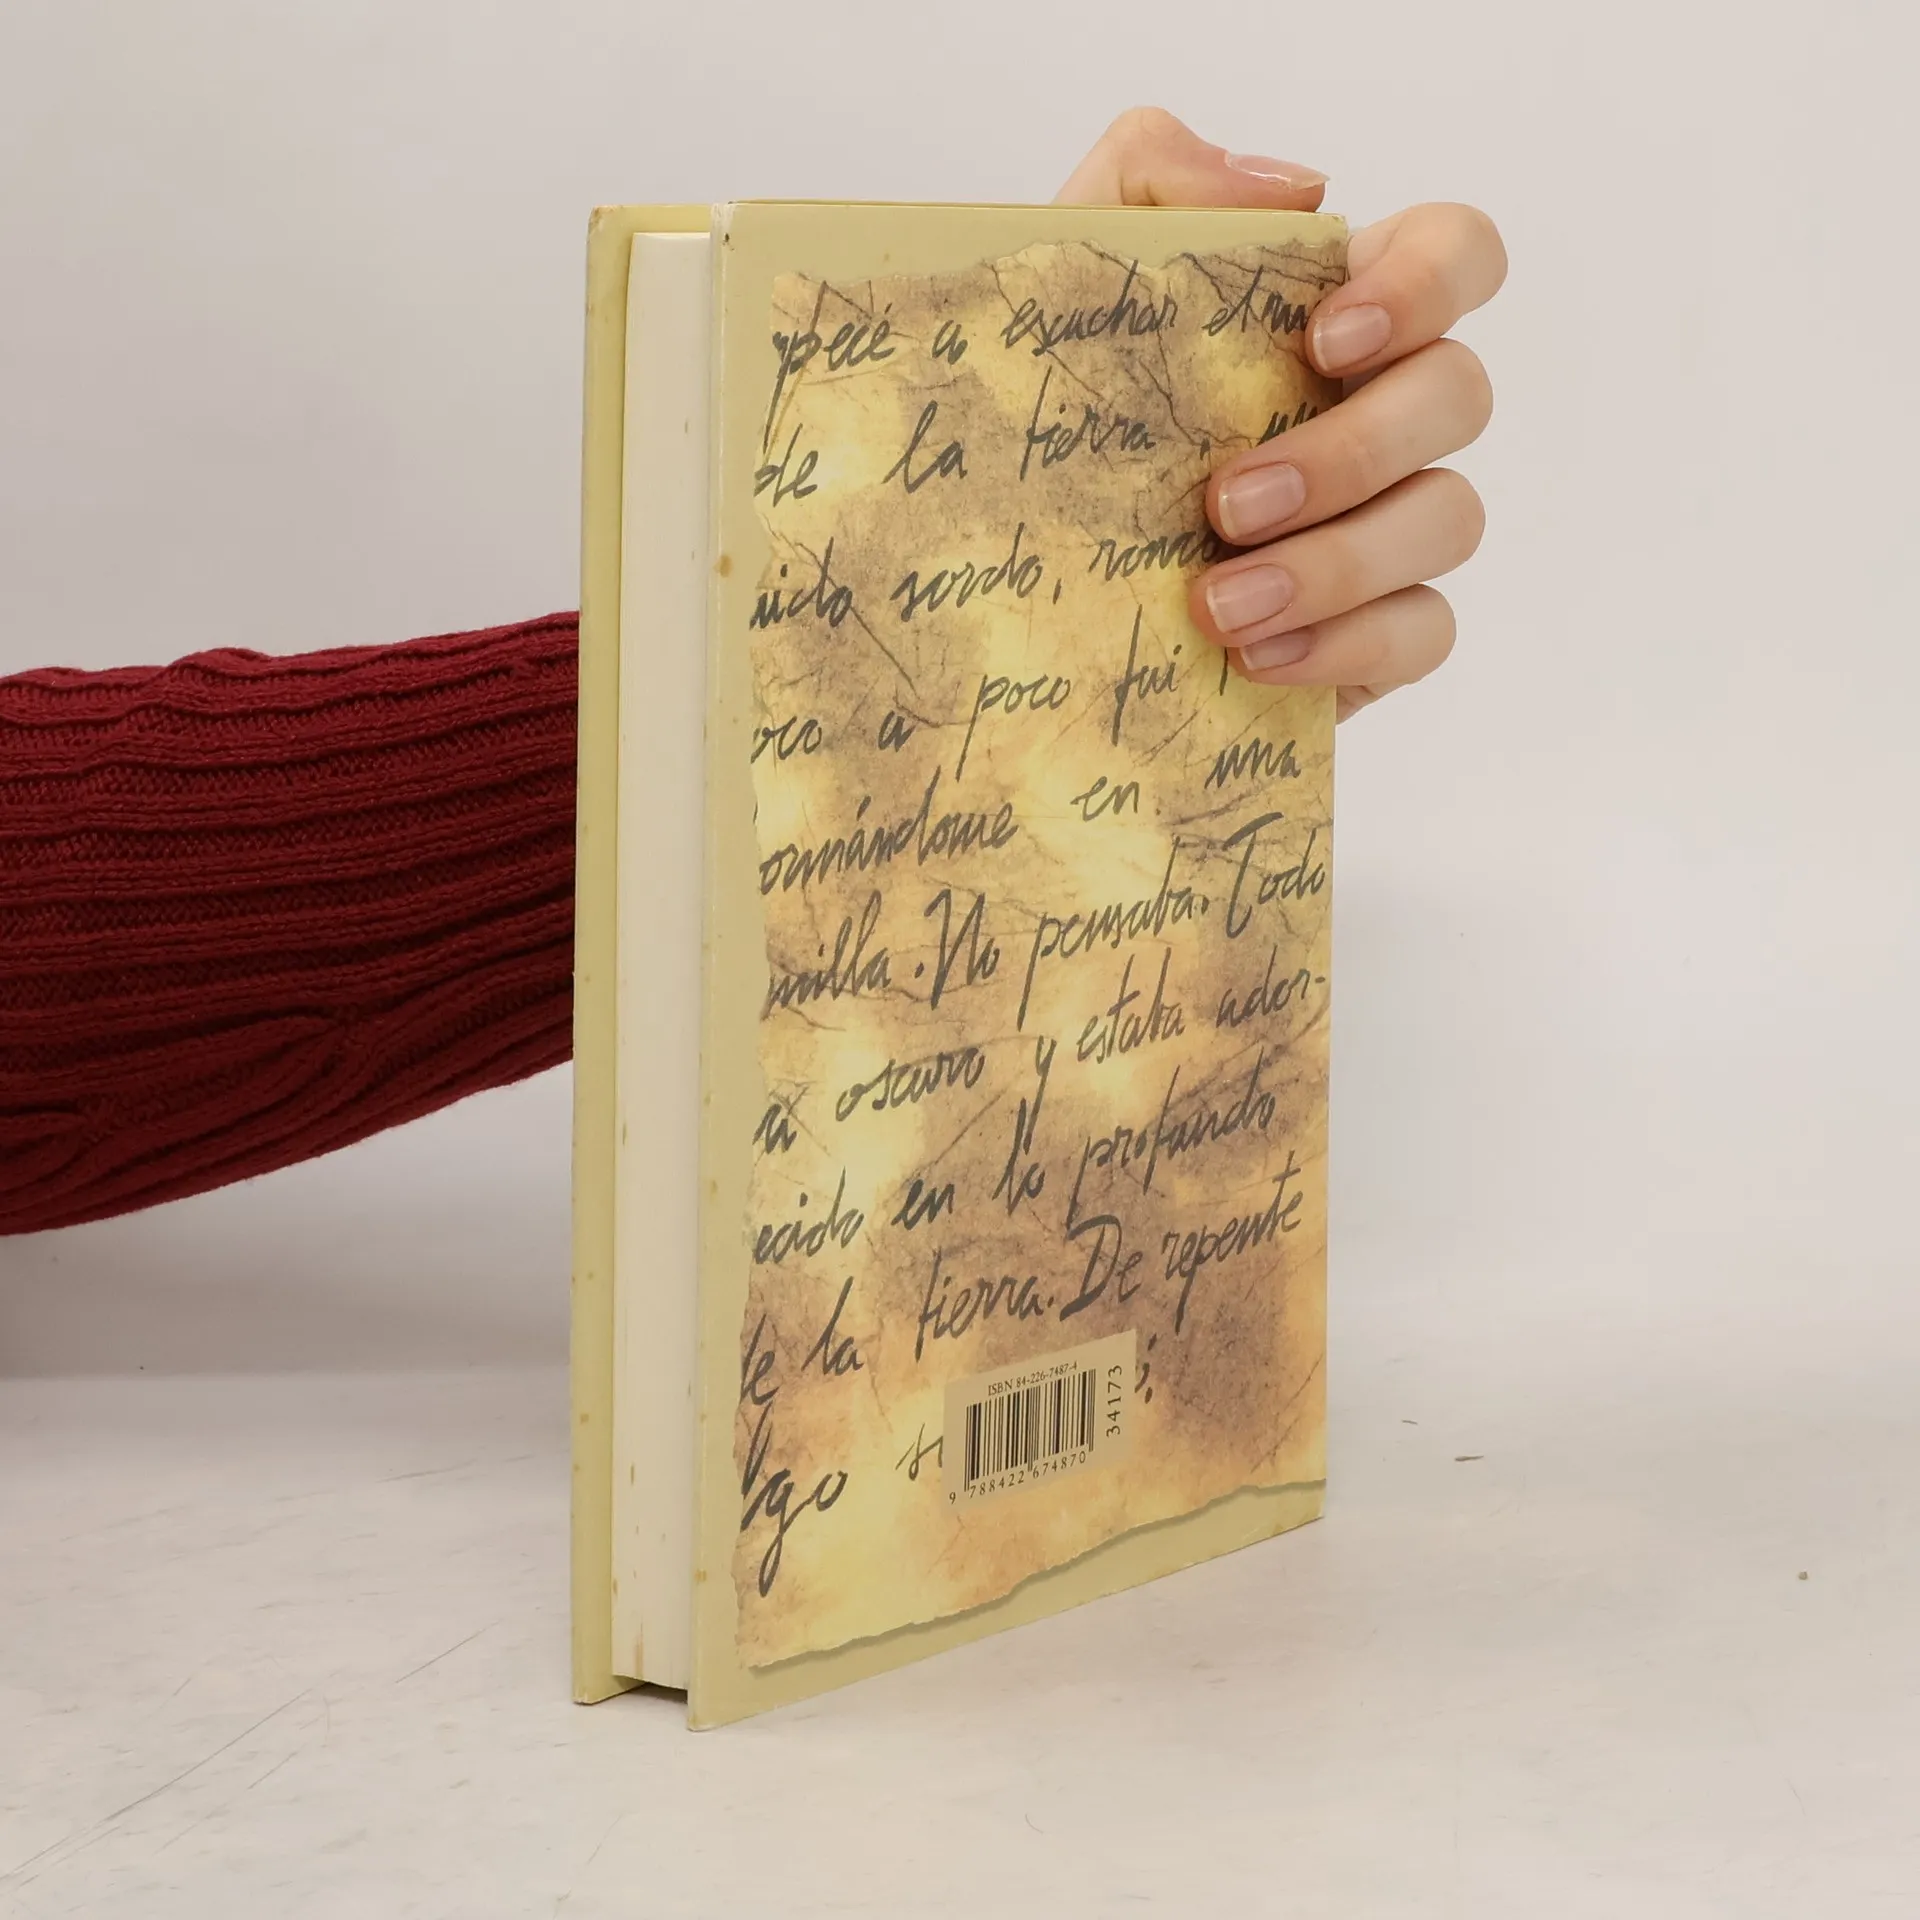 mpecé a escuchar el rui
de la tierra, un
uido sordo, ronco
oco a poco fui
ormándome en una
milla. No pensaba. Todo
ra oscuro y estaba ador-
ecido en lo profundo
de la tierra. De repente
lgo
ISBN 84-226-7487-4
34173
9 788422 674870